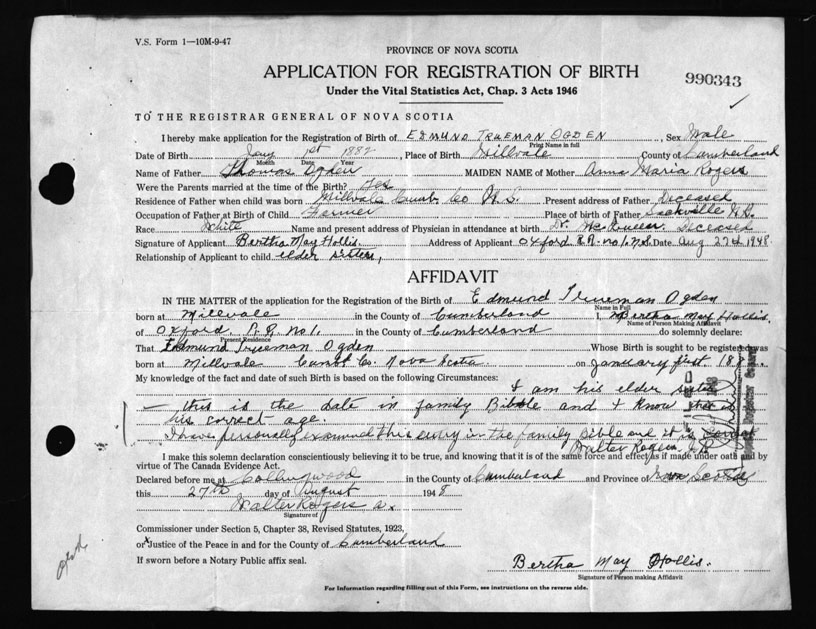 V.S. Form 1—10M-9-47
PROVINCE OF NOVA SCOTIA
APPLICATION FOR REGISTRATION OF BIRTH
990343
Under the Vital Statistics Act, Chap. 3 Acts 1946
TO THE REGISTRAR GENERAL OF NOVA SCOTIA
I hereby make application for the Registration of Birth of EDMUND TRUEMAN OGDEN, Sex Male
Print Name in full
Date of Birth Jany 1st 1882, Place of Birth Millvale County of Cumberland
Month Date Year
Name of Father Thomas Ogden MAIDEN NAME of Mother Anna Maria Rogers
Were the Parents married at the time of the Birth? Yes
Residence of Father when child was born Millvale Cumb. Co N.S. Present address of Father Deceased
Occupation of Father at Birth of Child Farmer Place of birth of Father Sackville N.B.
Race White Name and present address of Physician in attendance at birth Dr. McQueen. Deceased
Signature of Applicant Bertha May Hollis. Address of Applicant Oxford R.R. no 1. N.S. Date Aug 27th 1948.
Relationship of Applicant to child elder sister,
AFFIDAVIT
IN THE MATTER of the application for the Registration of the Birth of Edmund Trueman Ogden
Name in Full
born at Millvale in the County of Cumberland I, Bertha May Hollis.
Name of Person Making Affidavit
of Oxford. R.R. No 1. in the County of Cumberland do solemnly declare:
Present Residence
That Edmund Trueman Ogden Whose Birth is sought to be registered was
born at Millvale Cumb. Co. Nova Scotia on January first. 188
My knowledge of the fact and date of such Birth is based on the following Circumstances:
I am his elder sister
— this is the date in family Bible and I know this is
his correct age.
I have personally examined this entry in the family bible and it is correct
Walter Rogers J.P.
I make this solemn declaration conscientiously believing it to be true, and knowing that it is of the same force and effect as if made under oath and by
virtue of The Canada Evidence Act.
Declared before me at Collingwood in the County of Cumberland and Province of Nova Scotia
this 27th day of August 1948
Walter Rogers
Signature of
Commissioner under Section 5, Chapter 38, Revised Statutes, 1923,
or x Justice of the Peace in and for the County of Cumberland
If sworn before a Notary Public affix seal.
Bertha May Hollis.
Signature of Person making Affidavit
For Information regarding filling out of this Form, see instructions on the reverse side.